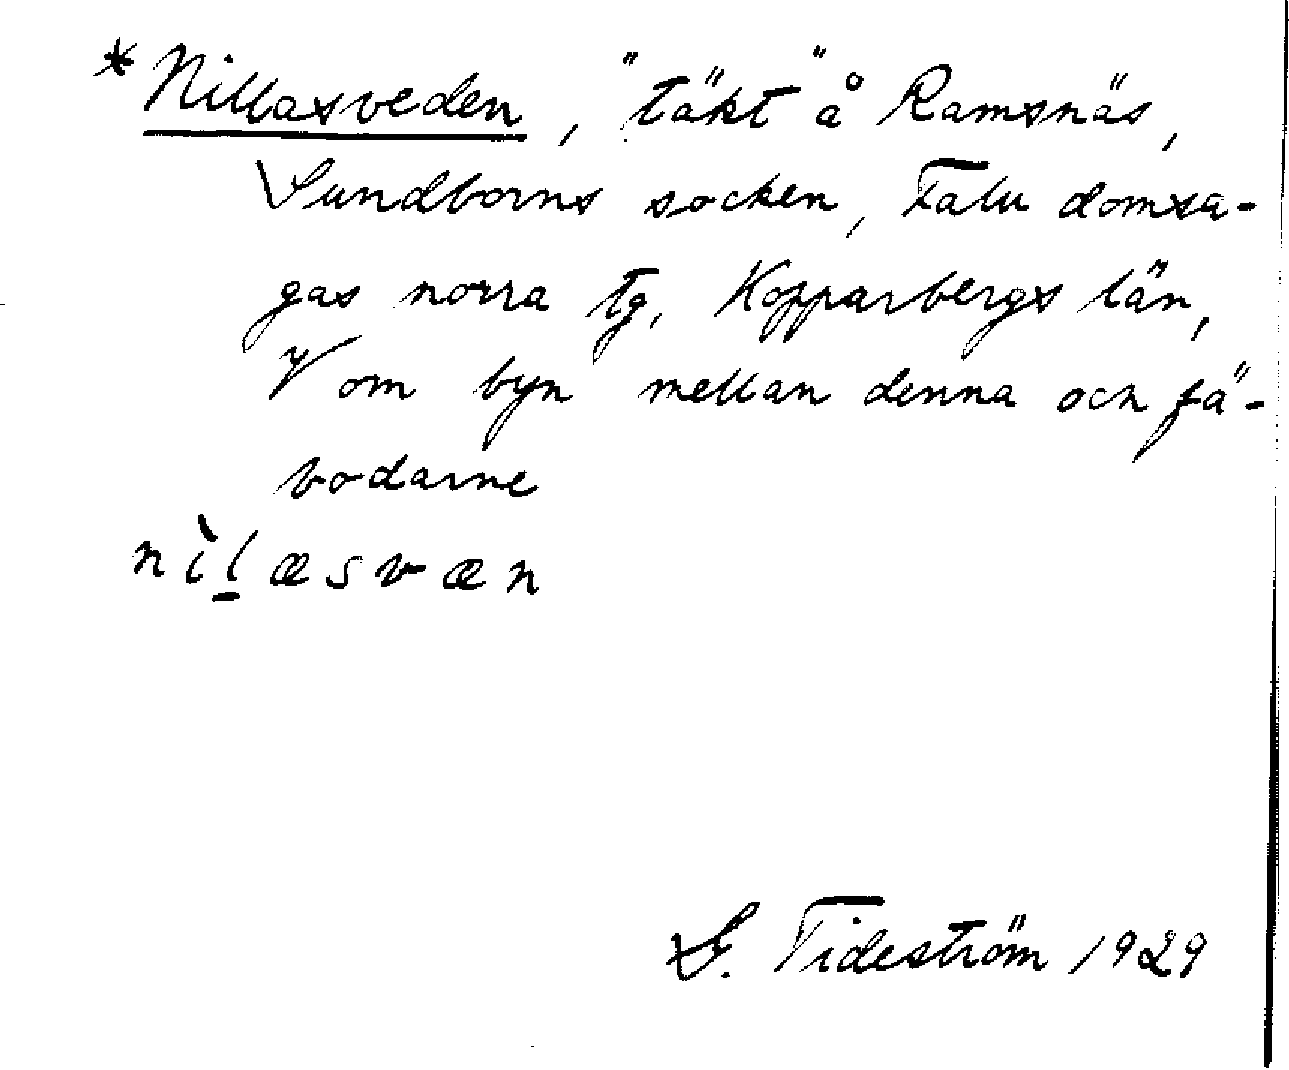 *Nillasveden, "täkt" å Ramsnäs,
Sundborns socken, Falu domsa-
gas norra tg, Kopparbergs län,
V om byn mellan denna och fä-
bodarne
nìl̲æsvæn
G. Tideström 1929